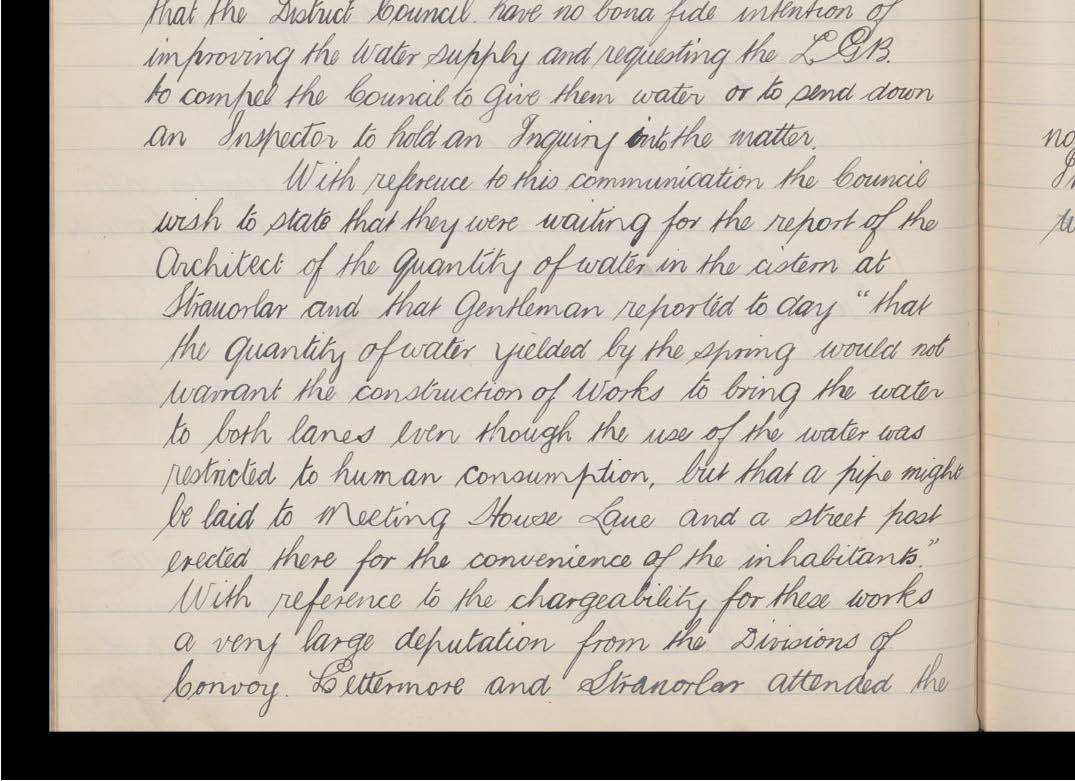 that the District Council have no bona fide intention of
improving the Water supply and requesting the L.G.B.
to compel the Council to give them water or to send down
an Inspector to hold an Inquiry into the matter.
With reference to this communication the Council
wish to state that they were waiting for the report of the
Architect of the quantity of water in the cistern at
Stranorlar and that Gentleman reported to day "that
the quantity of water yielded by the spring would not
warrant the construction of Works to bring the water
to both lanes even though the use of the water was
restricted to human consumption, but that a pipe might
be laid to Meeting House Lane and a street post
erected there for the convenience of the inhabitants."
With reference to the chargeability for these works
a very large deputation from the Divisions of
Convoy. Lettermore and Stranorlar attended the
no